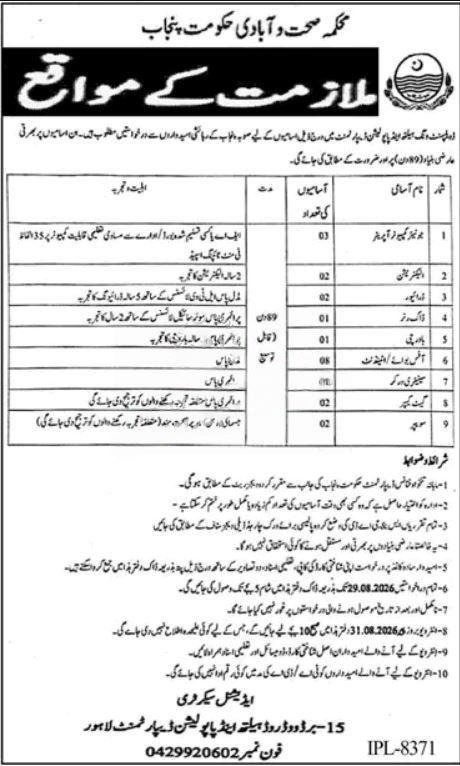 محکمہ صحت و آبادی حکومت پنجاب
ملازمت کے مواقع
ڈویلپمنٹ ونگ ہیلتھ اینڈ پاپولیشن ڈیپارٹمنٹ میں درج ذیل اسامیوں کے لیے صوبہ پنجاب کے رہائشی امیدواروں سے درخواستیں مطلوب ہیں۔ ان اسامیوں پر بھرتی
عارضی بنیاد (89 دن) پر اور ضرورت کے مطابق کی جائے گی۔
شمار نام آسامی آسامیوں کی تعداد مدت اہلیت و تجربہ
1 جونیئر کمپیوٹر آپریٹر 03 ایف اے یا کسی تسلیم شدہ بورڈ / ادارے سے مساوی تعلیمی قابلیت کمپیوٹر پر 35 الفاظ
فی منٹ ٹائپنگ اسپیڈ
2 الیکٹریشن 02 2 سالہ الیکٹریشن کا تجربہ
3 ڈرائیور 02 مڈل پاس ایل ٹی وی لائسنس کے ساتھ 5 سالہ ڈرائیونگ کا تجربہ
4 ڈاک رنر 01 89 دن پرائمری پاس موٹر سائیکل لائسنس کے ساتھ 2 سال کا تجربہ
5 باورچی 01 (قابل پرائمری پاس سالہ باورچی کا تجربہ
6 آفس بوائے / اٹینڈنٹ 08 توسیع مڈل پاس
7 سینیٹری ورکر پرائمری پاس
8 گیٹ کیپر 02 پرائمری پاس متعلقہ تجربہ رکھنے والوں کو ترجیح دی جائے گی
9 سویپر 02 جسمانی (متعلقہ تجربہ رکھنے والوں کو ترجیح دی جائے گی)
شرائط و ضوابط
1- ماہانہ تنخواہ فنانس ڈیپارٹمنٹ حکومت پنجاب کی جانب سے مقرر کردہ ویجز ریٹ کے مطابق ہوگی۔
2- ادارہ کو اختیار حاصل ہے کہ وہ کسی بھی وقت آسامیوں کی تعداد کم زیادہ یا مکمل طور پر ختم کر سکتا ہے۔
3- تمام تقرریاں ایس اینڈ جی اے ڈی کی وضع کردہ پالیسی برائے ورک چارجڈ ڈیلی ویجز سٹاف کے مطابق کی جائیں
4- یہ خالصتاً عارضی بنیادوں پر بھرتی اور مستقل ہونے کا کوئی استحقاق نہیں ہوگا۔
5- امیدوار سادہ کاغذ پر درخواست اپنی شناختی کارڈ کی کاپی، تعلیمی اسناد، دو تصاویر کے ساتھ درج ذیل پتہ پر بذریعہ ڈاک دفتر ہذا میں جمع کروا سکتے ہیں۔
6- تمام درخواستیں 29.08.2026 تک بذریعہ ڈاک دفتر ہذا میں شام 5 بجے تک وصول کی جائیں گی۔
7- نامکمل اور بعد از تاریخ موصول ہونے والی درخواستوں پر غور نہیں کیا جائے گا۔
8- انٹرویو بروز 31.08.2026 دفتر ہذا میں صبح 10 بجے لیے جائیں گے، جس کے لیے کوئی علیحدہ اطلاع نہیں دی جائے گی۔
9- انٹرویو کے لیے آنے والے امیدواران اصل شناختی کارڈ، ڈومیسائل اور تعلیمی اسناد ہمراہ لائیں۔
10- انٹرویو کے لیے آنے والے امیدواروں کو ٹی اے / ڈی اے کی مد میں کوئی رقم ادا نہیں کی جائے گی۔
ایڈیشنل سیکرٹری
15- برڈ ووڈ روڈ ہیلتھ اینڈ پاپولیشن ڈیپارٹمنٹ لاہور
فون نمبر 0429920602
IPL-8371